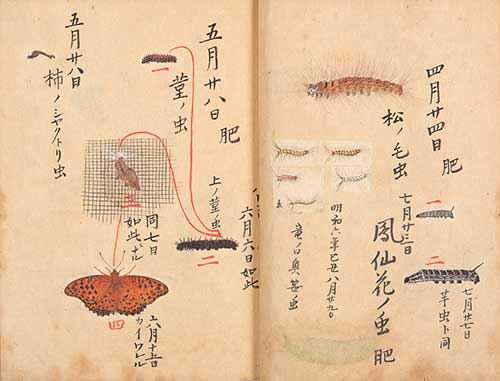 四月廿四日 肥
松ノ毛虫
七月廿三日
鳳仙花ノ虫 肥
一
二
七月廿七日
芋虫ト同
明和六年己丑八月廿九日
五月廿八日 肥
菫ノ虫
一
上ノ菫ノ虫
六月六日如此
二
三
同七日
如此ナル
四
六月十五日
カイワル
五月廿八日
柿ノシャクトリ虫